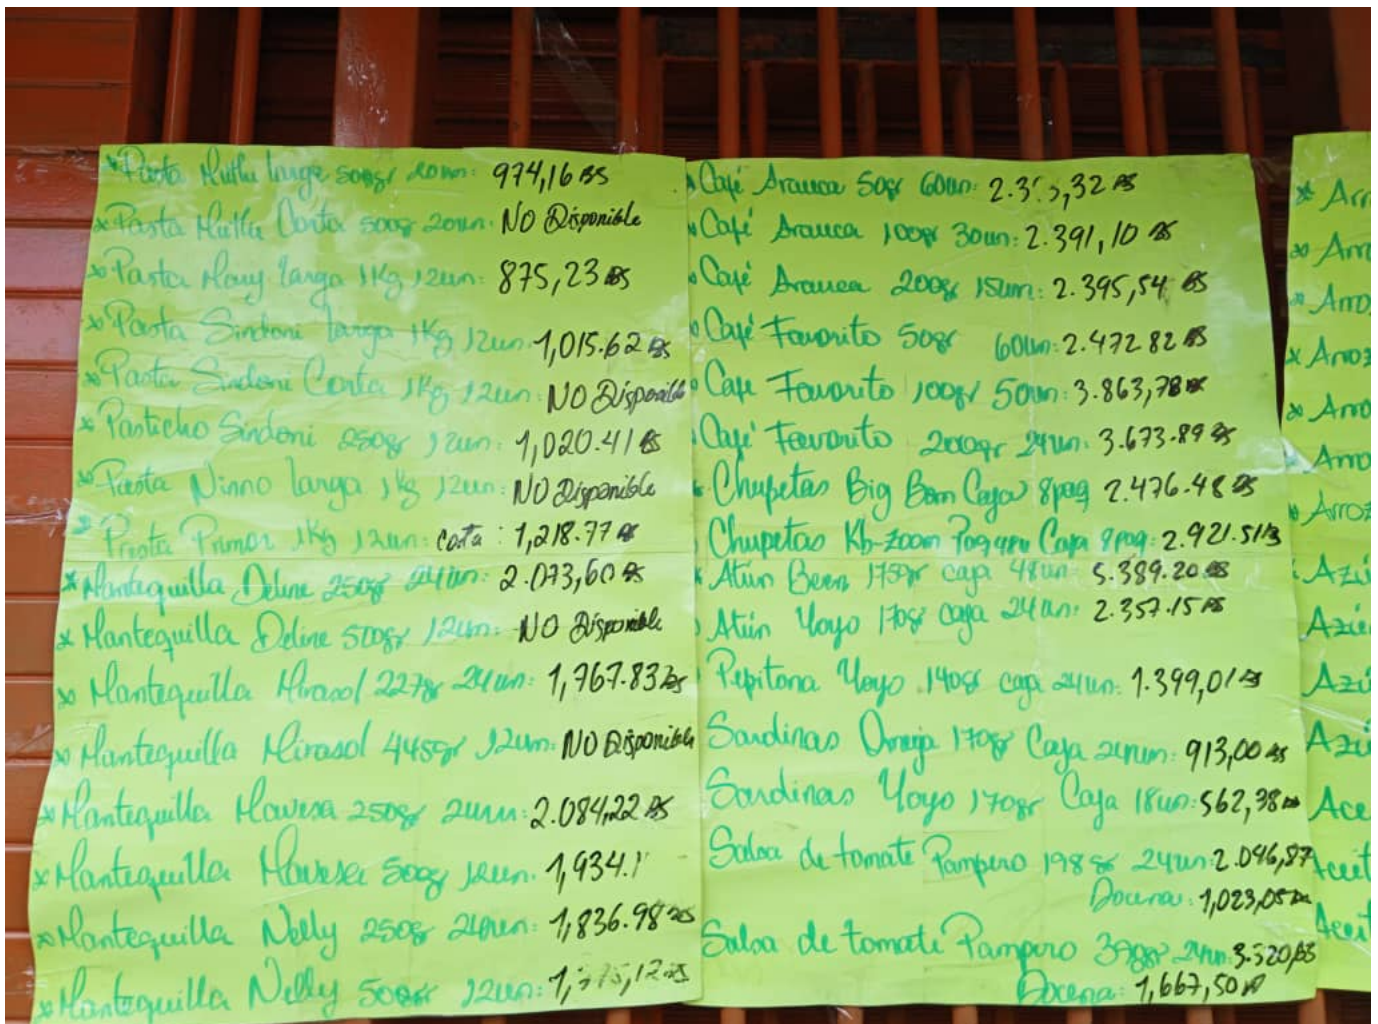 * Pasta large 500gr 20un: 974,16 BS
* Pasta Corta 500gr 20un: NO Disponible
* Pasta Mary larga 1Kg 12un: 875,23 BS
* Pasta Sindoni larga 1Kg 12un: 1,015.62 BS
* Pasta Sindoni Corta 1Kg 12un: NO Disponible
* Pasticho Sindoni 250gr 12un: 1,020.41 BS
* Pasta Ninno larga 1Kg 12un: NO Disponible
* Pasta Primor 1Kg 12un: corta: 1,218.77 BS
* Mantequilla Deline 250gr 24un: 2.073,60 BS
* Mantequilla Deline 500gr 12un: NO Disponible
* Mantequilla Mirasol 227gr 24un: 1,767.83 BS
* Mantequilla Mirasol 445gr 12un: NO Disponible
* Mantequilla Mavesa 250gr 24un: 2.084,22 BS
* Mantequilla Mavesa 500gr 12un: 1,934.1
* Mantequilla Nelly 250gr 24un: 1,836.98 BS
* Mantequilla Nelly 500gr 12un:
* Café Arauca 50gr 60un:
* Café Arauca 100gr 30un: 2.391,10 BS
* Café Arauca 200gr 15un: 2.395,54 BS
* Café Favorito 50gr 60un: 2.472 82 BS
* Cafe Favorito 100gr 50un: 3.863,78 BS
Café Favorito 200gr 24un: 3.673.89 BS
* Chupetas Big Bom Caja 8paq 2.476.48 BS
Chupetas Kb-zoom Caja 8paq: 2.921.51 BS
* Atún 175gr caja 48un: 5.389.20 BS
Atún Yoyo 170gr caja 24un: 2.357.15 BS
Pepitona Yoyo 140gr caja 24un: 1.399,01 BS
Sardinas Omega 170gr Caja 24un: 913,00 BS
Sardinas Yoyo 170gr Caja 18un: 562,38 BS
Salsa de tomate Pampero 198gr 24un: 2.046,87
Docena: 1,023,05 BS
Salsa de tomate Pampero 24un: 3.320,BS
Docena: 1,667,50 BS
* Arr
* Arro
* Arroz
* Arroz
* Arro
Arro
* Arroz
* Azú
Azúc
Azú
Azú
Ace
Aceit
Aceit